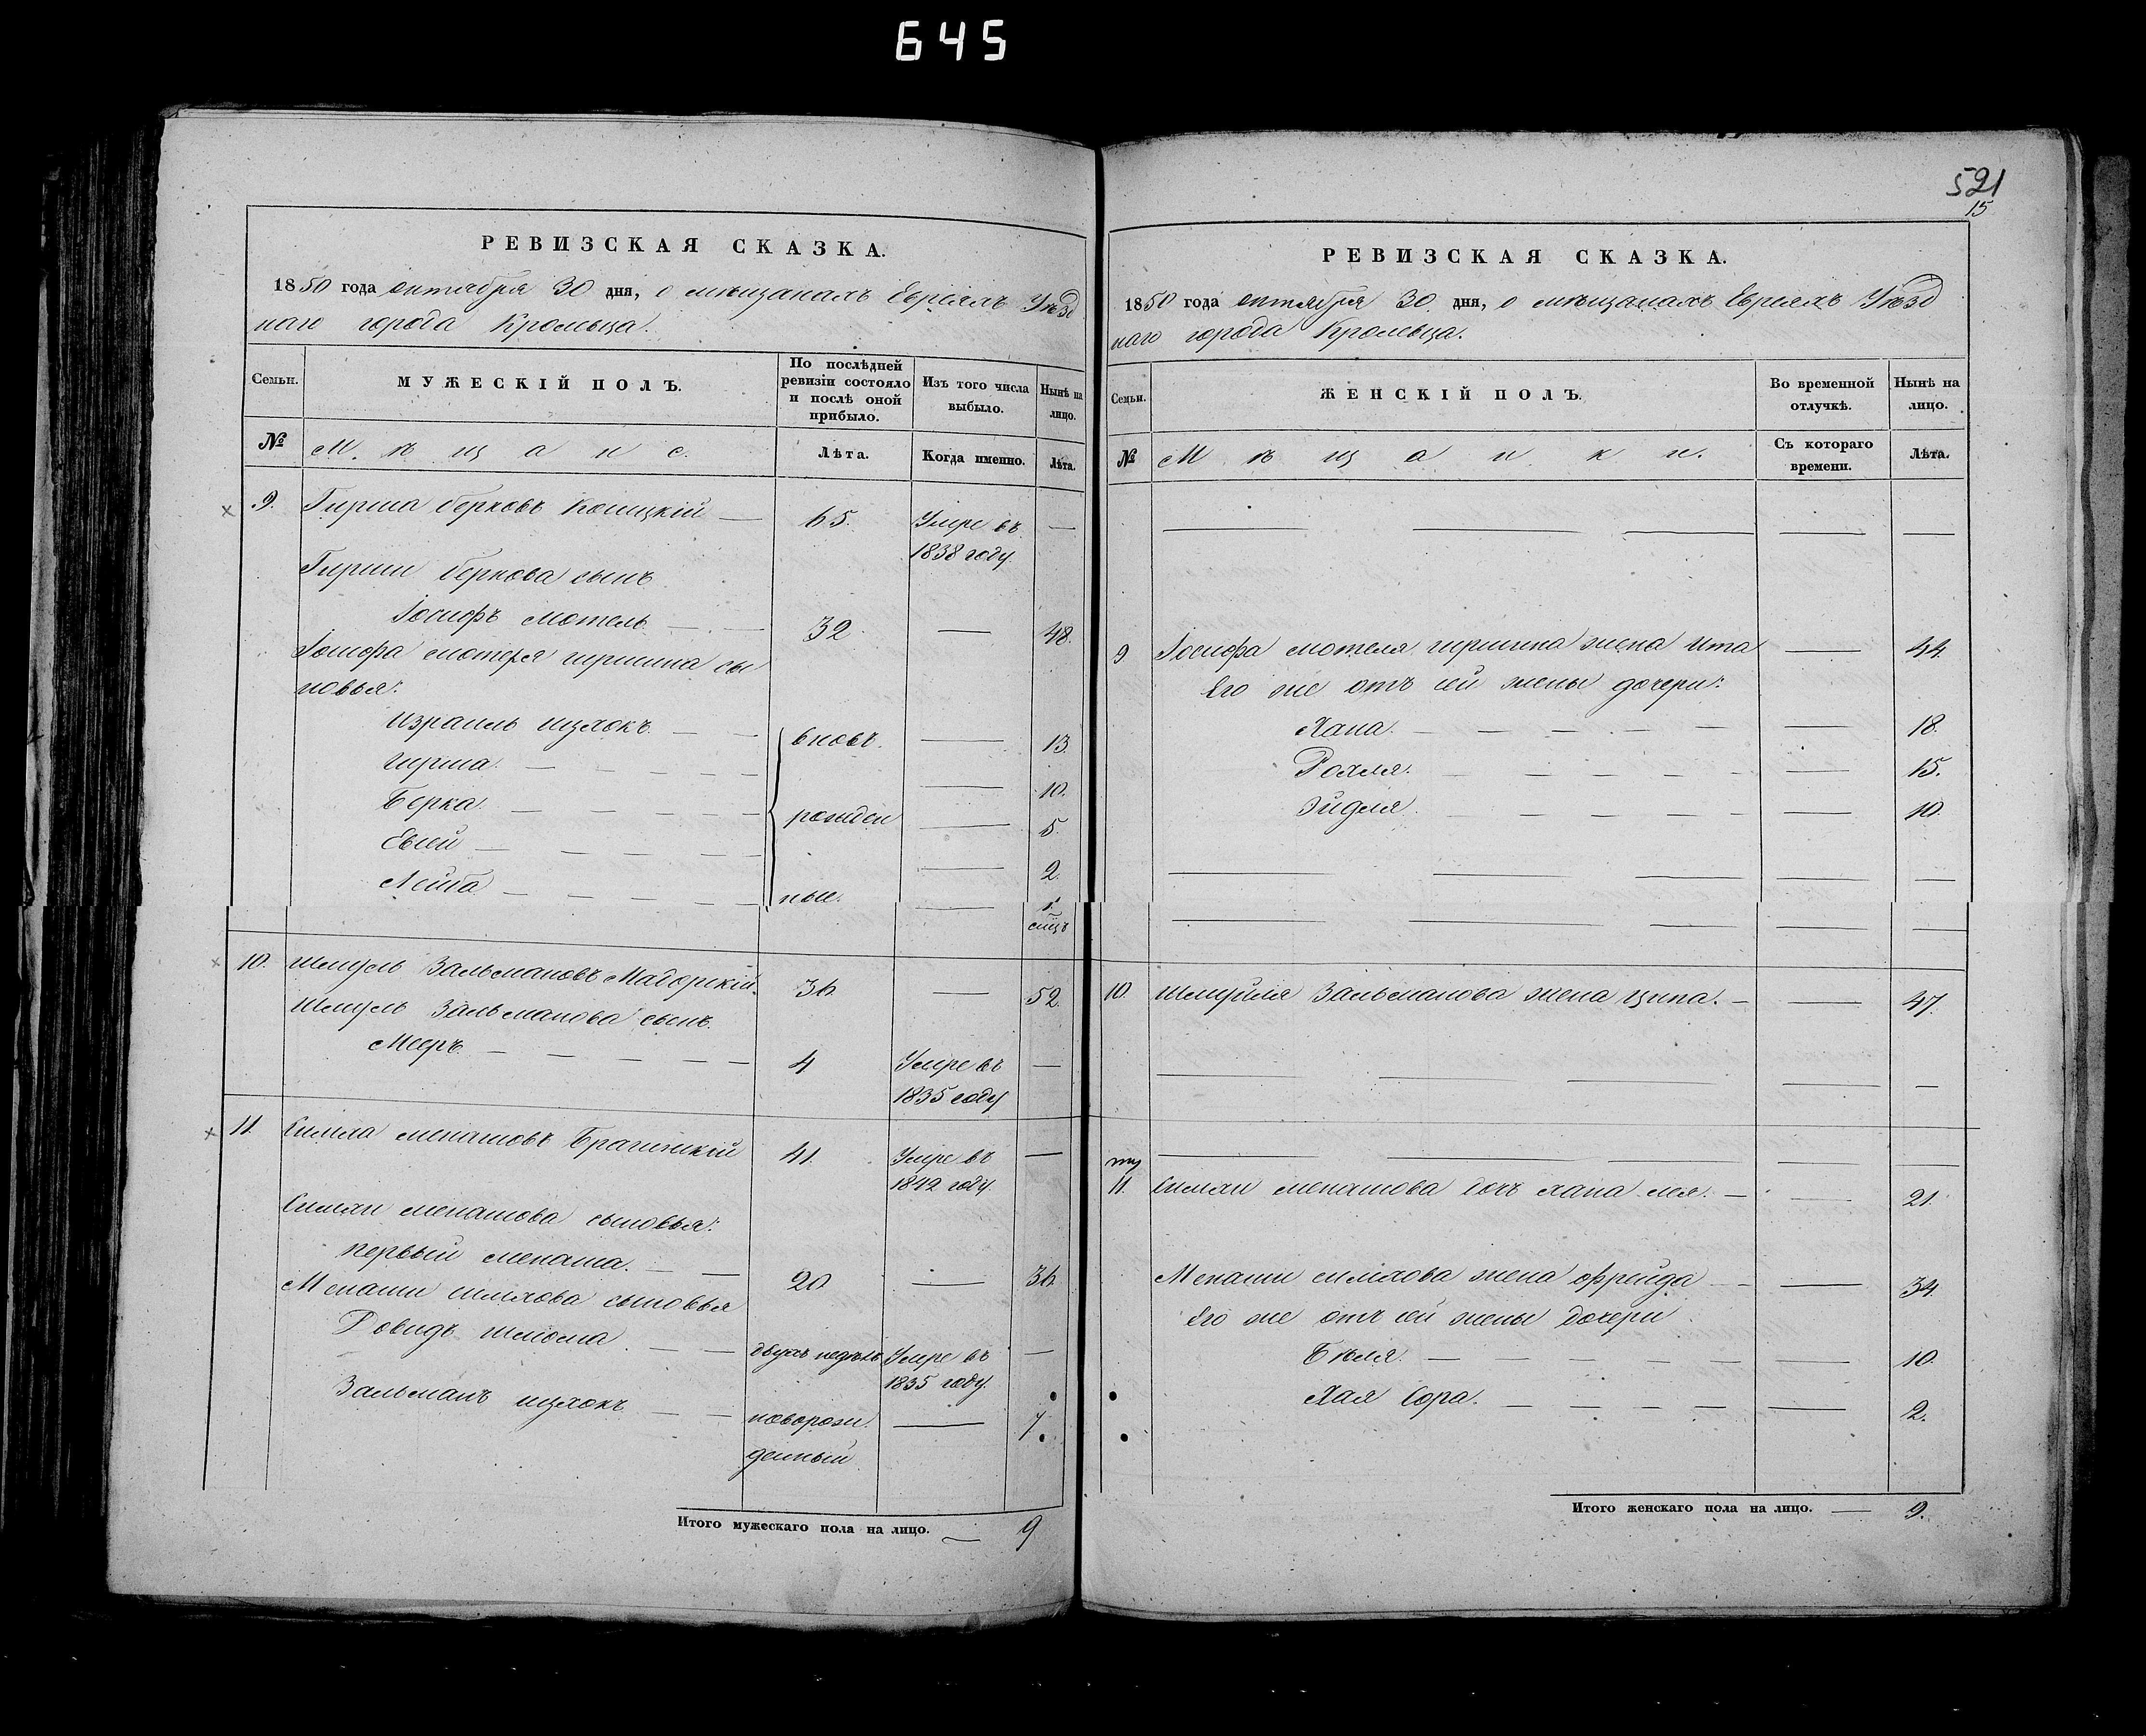 645
521
15
РЕВИЗСКАЯ СКАЗКА.
1850 года октября 30 дня, о мѣщанахъ Евреяхъ Уѣзд
наго города Кролевца.
Семьи.
МУЖЕСКІЙ ПОЛЪ.
По послѣдней ревизіи состояло и послѣ оной прибыло.
Изъ того числа выбыло.
Нынѣ на лицо.
№
Мѣщане.
Лѣта.
Когда именно.
Лѣта.
9. Гирша Берковъ — 65. Умре въ —
1838 году.
Гирши Беркова сынъ
Іосифъ Мотель — 32. — 48.
Іосифа Мотеля Гиршина сы
новья:
Израиль Ицхокъ — вновь — 13.
Гирша. — 10.
Берка. — рожден — 5.
Евсей — 2.
Лейба — ные. — 1.
мѣсц.
10. Шмуль Зальмановъ 36. — 52.
Шмуль Зальманова сынъ.
Мееръ. — 4. Умре въ —
1835 году
11. Симха Менашовъ 41. Умре въ —
1842 году.
Симхи Менашова сыновья:
первый Менаша. — 20 — 36.
Менаши Симхова сыновья
Шліома — двухъ недѣль Умре въ —
1835 году.
Зальманъ Ицхокъ — новорож — 7.
денный
Итого мужескаго пола на лицо. — 9
РЕВИЗСКАЯ СКАЗКА.
1850 года октября 30 дня, о мѣщанахъ Евреяхъ Уѣзд
наго города Кролевца.
Семьи.
ЖЕНСКІЙ ПОЛЪ.
Во временной отлучкѣ.
Нынѣ на лицо.
№
Мѣщанки.
Съ котораго времени.
Лѣта.
9 Іосифа Мотеля Гиршина жена Ита — 44.
Его же отъ сей жены дочери:
Хана. — 18.
Рохля. — 15.
Эйдля. — 10.
10. Шмуйля Зальманова жена Ципа. — 47.
11. Симхи Менашова дочь Хана Лея. — 21.
Менаши Симхова жена Фрейда — 34.
Его же отъ сей жены дочери
Бѣля. — 10.
Хая Сора. — 2.
Итого женскаго пола на лицо. — 9.